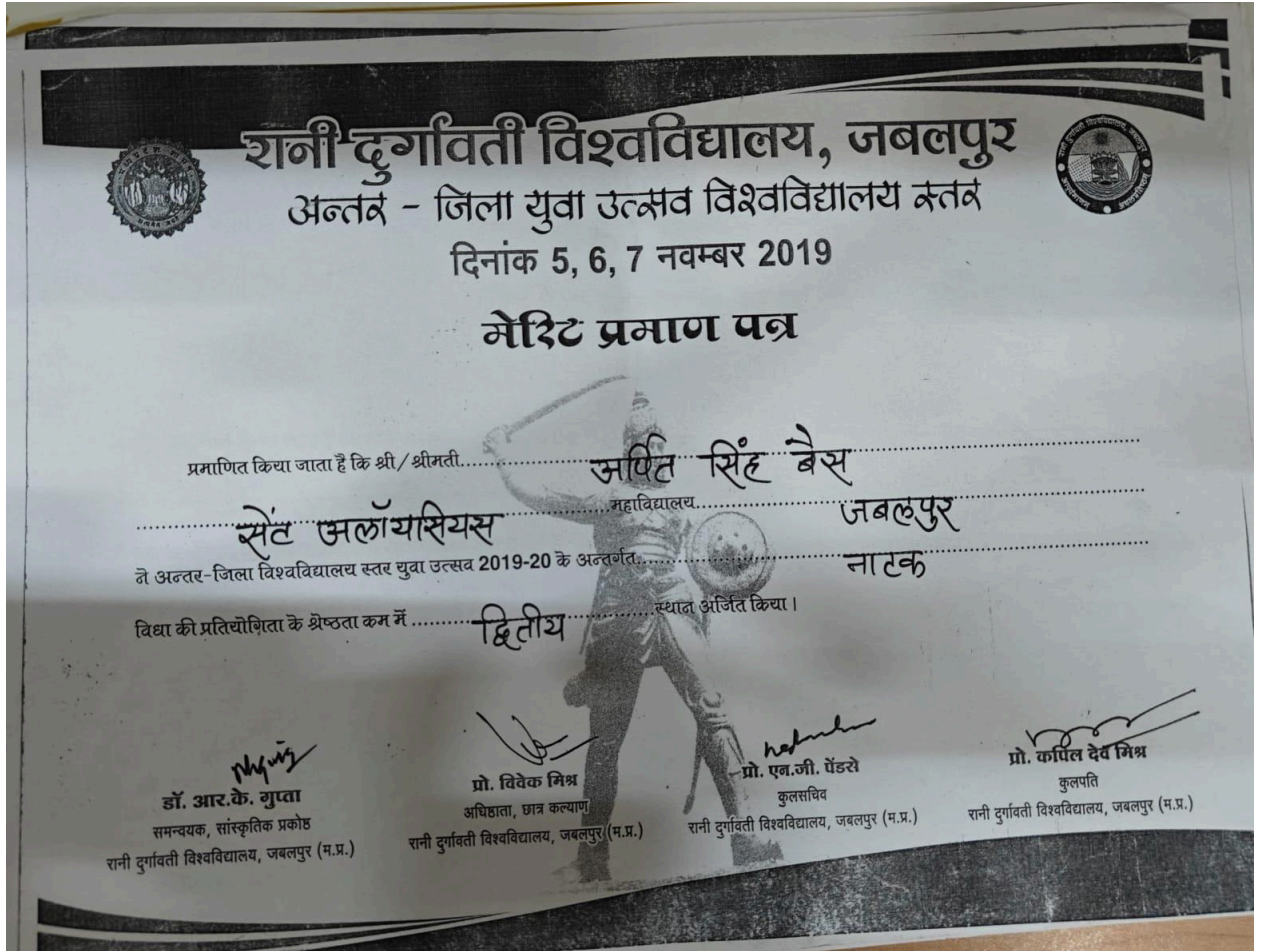 रानी दुर्गावती विश्वविद्यालय, जबलपुर
अन्तर - जिला युवा उत्सव विश्वविद्यालय स्तर
दिनांक 5, 6, 7 नवम्बर 2019
मेरिट प्रमाण पत्र
प्रमाणित किया जाता है कि श्री/श्रीमती अर्पित सिंह बैस
सेंट अलॉयसियस महाविद्यालय जबलपुर
ने अन्तर-जिला विश्वविद्यालय स्तर युवा उत्सव 2019-20 के अन्तर्गत नाटक
विधा की प्रतियोगिता के श्रेष्ठता कम में द्वितीय स्थान अर्जित किया।
डॉ. आर.के. गुप्ता
समन्वयक, सांस्कृतिक प्रकोष्ठ
रानी दुर्गावती विश्वविद्यालय, जबलपुर (म.प्र.)
प्रो. विवेक मिश्र
अधिष्ठाता, छात्र कल्याण
रानी दुर्गावती विश्वविद्यालय, जबलपुर (म.प्र.)
प्रो. एन.जी. पेंडसे
कुलसचिव
रानी दुर्गावती विश्वविद्यालय, जबलपुर (म.प्र.)
प्रो. कपिल देव मिश्र
कुलपति
रानी दुर्गावती विश्वविद्यालय, जबलपुर (म.प्र.)